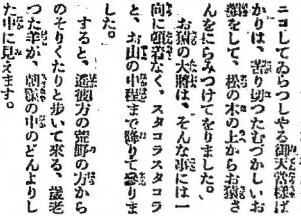 ニコしてゐらつしやる御天道様ば
かりは、苦り切つたむづかしいお
顔をして、松の木の上からお猿さ
んをにらみつけてをりました。
お猿の大将は、そんな事には一
向に頓着なく、スタコラスタコラ
と、お山の中程まで降りて参りま
した。
すると、遥彼方の荒野の方から
のそりくたりと歩いて来る、歳老
つた羊が、朝靄の中のどんよりし
た中に見えます。